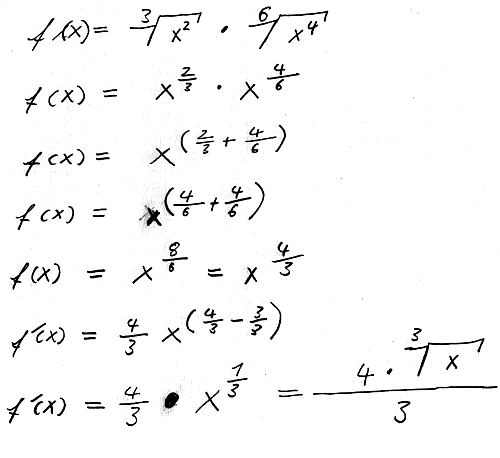 f(x) = ∛x² · ⁶√x⁴
f(x) = x^(2/3) · x^(4/6)
f(x) = x^(2/3 + 4/6)
f(x) = x^(4/6 + 4/6)
f(x) = x^(8/6) = x^(4/3)
f'(x) = 4/3 x^(4/3 - 3/3)
f'(x) = 4/3 · x^(1/3) = (4 · ∛x)/3